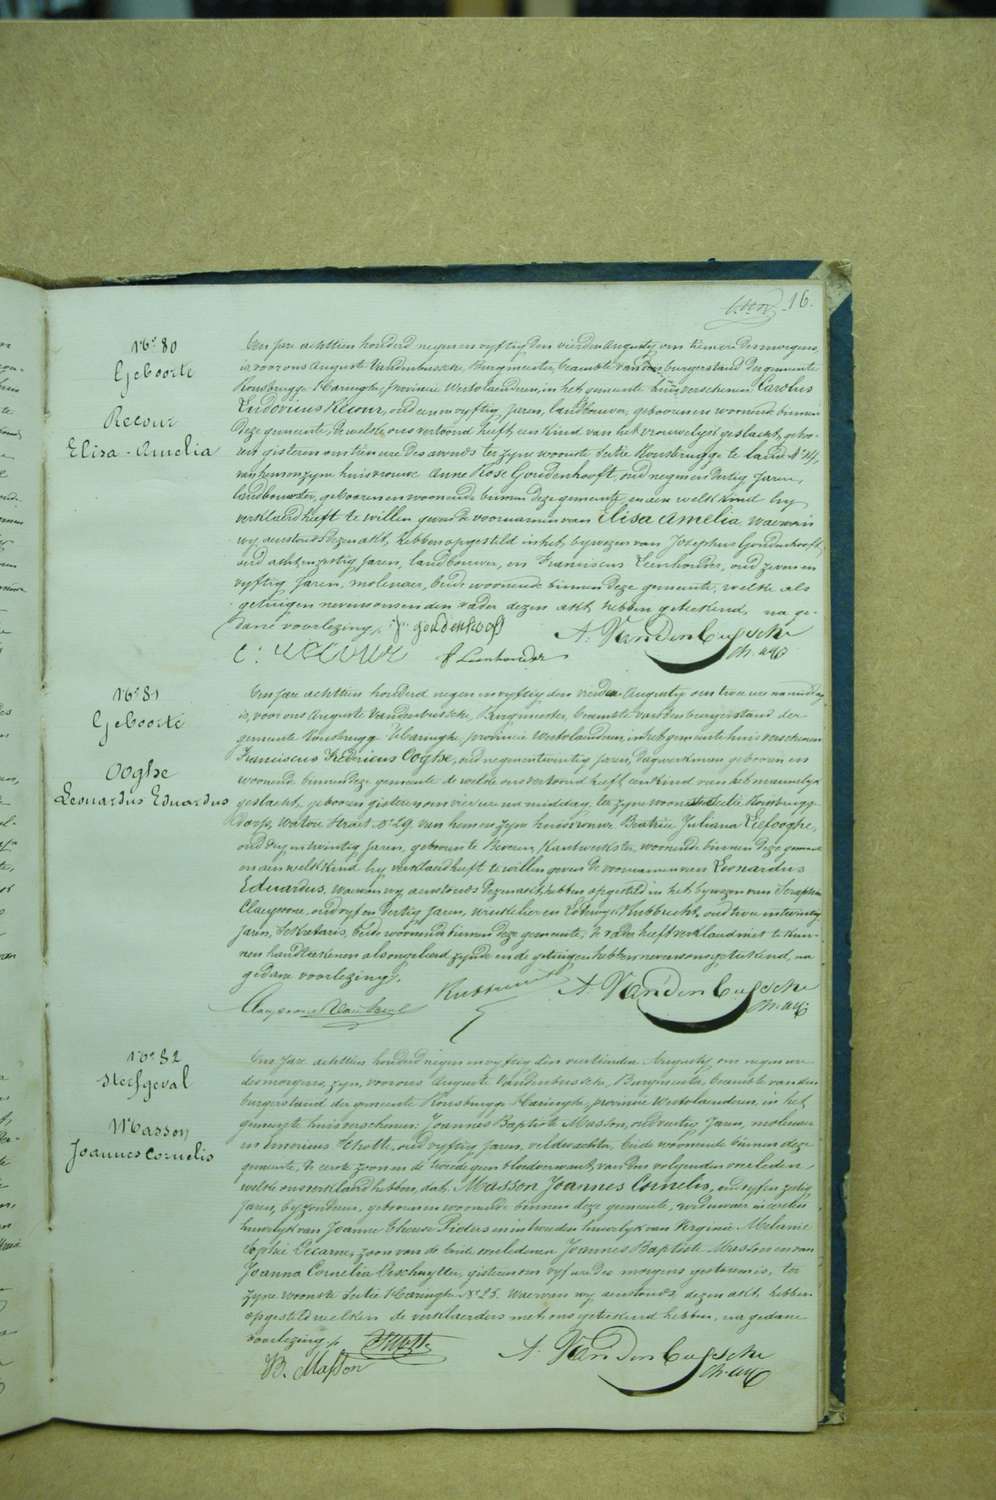 16.
N° 80
Geboorte
Recour
Elisa-Amelia
Ten jare achttien honderd negen en vyftig den vierden Augusty om tien ure des morgens
is voor ons Auguste Vandenbussche, Burgmeester, beambte van den burgerstand der gemeente
Rousbrugge-Haringhe, provincie Westvlaenderen, in het gemeente huis verschenen Carolus
Ludovicus Recour, oud een en vyftig Jaren, landbouwer, geboren en woonende binnen
deze gemeente, de welke ons vertoond heeft een kind van het vrouwelyk geslacht, gebo-
ren gisteren om tien ure des avonds ter zyne woonste Sectie Rousbrugge te land N° 24,
van hem en zyne huisvrouwe Anne Rose Goudenhooft, oud negen en dertig Jaren,
landbouwster, geboren en woonende binnen deze gemeente, en aen welk kind hy
verklaerd heeft te willen geven de voornamen van Elisa Amelia, waervan
wy aenstonds dezen akt hebben opgesteld in het bywezen van Josephus Goudenhooft,
oud acht en zestig Jaren, landbouwer, en Franciscus Leenhouder, oud zeven en
vyftig Jaren, molenaer, beide woonende binnen deze gemeente, welke als
getuigen nevens ons en den vader dezen akt hebben geteekend, na ge-
dane voorlezing. J. goudenhooft A. Vandenbussche
C: recour F Leenhouder
N° 81
Geboorte
Ooghe
Leonardus Eduardus
Ten jare achttien honderd negen en vyftig den vierden Augusty om twee ure namiddag
is, voor ons Auguste Vandenbussche, Burgmeester, beambte van den burgerstand der
gemeente Rousbrugge-Haringhe, provincie Westvlaenderen, in het gemeente huis verschenen
Franciscus Fredericus Ooghe, oud negen en twintig Jaren, dagwerkman geboren en
woonende binnen deze gemeente de welke ons vertoond heeft een kind van het mannelyk
geslacht, geboren gisteren om vier ure na middag, ter zyne woonste Sectie Rousbrugge
Dorp, Watou Straet N° 29, van hem en zyne huisvrouwe Beatrice Juliana Liefooghe,
oud dry en twintig Jaren, geboren te Beveren, kantwerkster, woonende binnen deze gemeente
en aen welk kind hy verklaerd heeft te willen geven de voornamen van Leonardus
Eduardus, waervan wy aenstonds dezen akt hebben opgesteld in het bywezen van Seraphin
Claeyssone, oud vyf en dertig Jaren, winkelier en Rubbrecht, oud twee en twintig
Jaren, Sekretaris, beide woonende binnen deze gemeente, de vader heeft verklaerd niet te kun-
nen handteekenen als ongeleerd zynde en de getuigen hebben nevens ons geteekend, na
gedane voorlezing.
Claeyssone Rubbrecht A. Vandenbussche
N° 82
Sterfgeval
Masson
Joannes Cornelis
Ten jare achttien honderd negen en vyftig den veertienden Augusty om negen ure
des morgens, zyn, voor ons Auguste Vandenbussche, Burgmeester, beambte van den
burgerstand der gemeente Rousbrugge-Haringhe, provincie Westvlaenderen, in het
gemeente huis verschenen Joannes Baptiste Masson, oud veertig Jaren, molenaer
en oud vyftig Jaren, veldwachter, beide woonende binnen deze
gemeente, de eerste zoon en de tweede geen bloedverwant van den volgenden overleden,
welke ons verklaerd hebben, dat Masson Joannes Cornelis, oud vyf en zestig
Jaren, byzondere, geboren en woonende binnen deze gemeente, weduwaer in eersten
huwelyk van Joanne Therese Pieders en in tweeden huwelyk van Virginie Melanie
Sophie Decarne, zoon van de beide overledenen Joannes Baptiste Masson en van
Joanna Cornelia Verschuytter, gisteren om vyf ure des morgens gestorven is, ter
zyne woonste Sectie Haringhe N° 25. Waervan wy aenstonds dezen akt hebben
opgesteld welken de verklaerders met ons geteekend hebben, na gedane
voorlezing.
B. Masson A. Vandenbussche